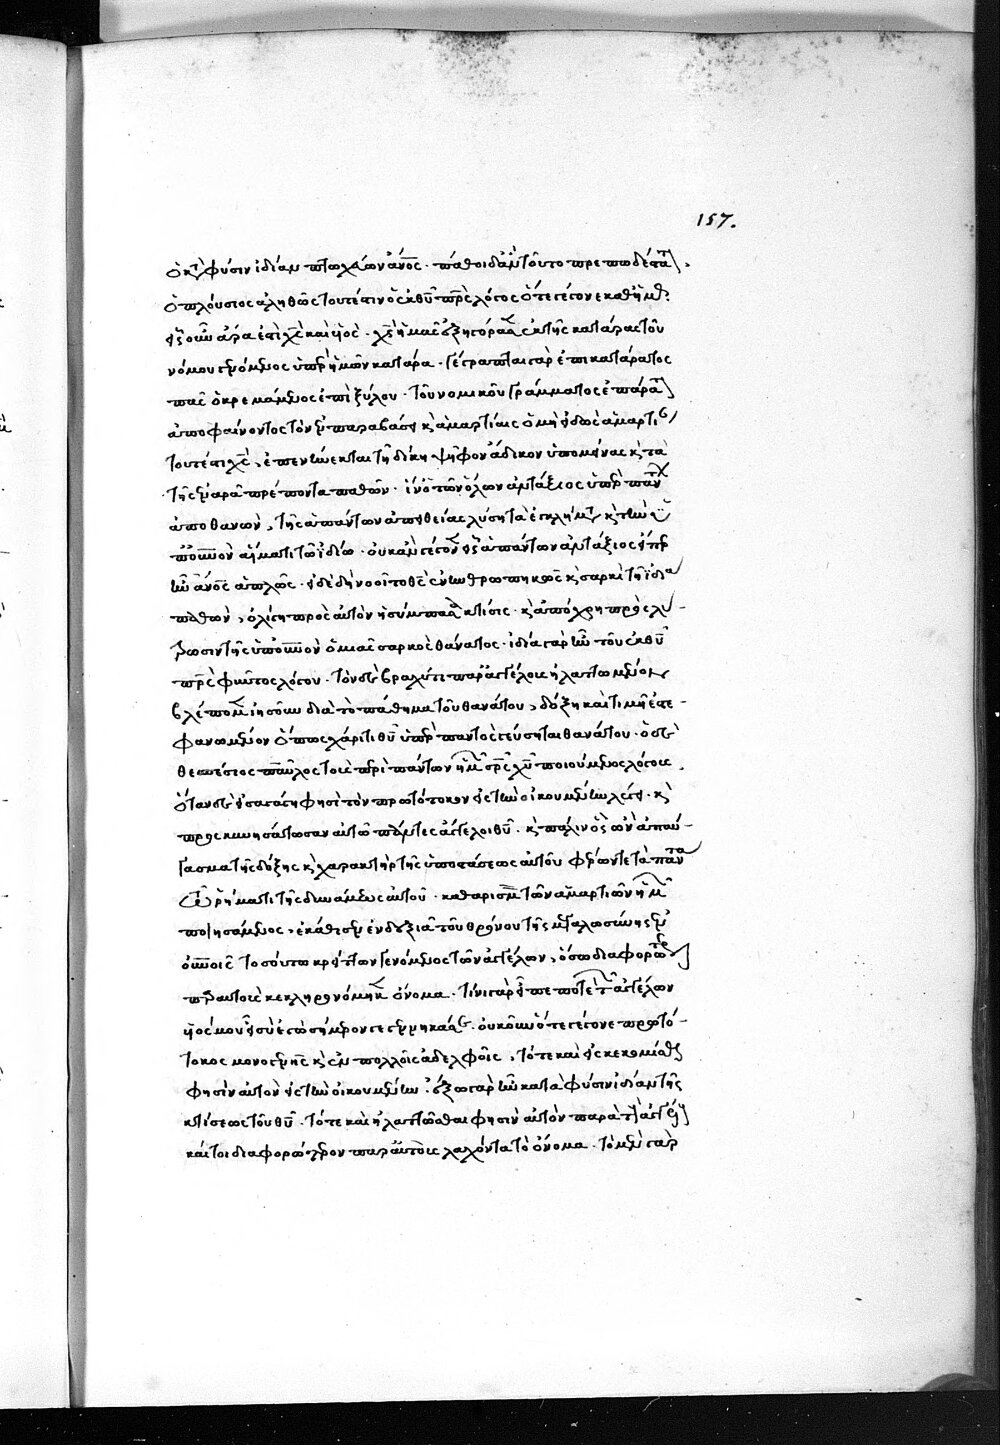 157.
ὁ κατὰ φύσιν ἰδίαν πτωχεύων ἄνος · πάθοι δ' ἂν τοῦτο πρεπωδέστατα
ὁ πλούσιος ἀληθῶς τουτέστιν ὁ ἐκ θῦ πρς λόγος ὅτε γέγονε καθ' ἡμᾶς.
εἷς οὖν ἄρα ἐστὶ χς καὶ υἱὸς · χς ἡμᾶς ἐξηγόρασεν ἐκ τῆς κατάρας τοῦ
νόμου γενόμενος ὑπὲρ ἡμῶν κατάρα · γέγραπται γὰρ ἐπικατάρατος
πᾶς ὁ κρεμάμενος ἐπὶ ξύλου · τοῦ νομικοῦ γράμματος ἐπάρατον
ἀποφαίνοντος τὸν ἐν παραβάσει κ ἁμαρτίαις ὁ μὴ εἰδὼς ἁμαρτίαν
τουτέστι χς, ἐπενήνεκται τῇ δίκῃ ψῆφον ἄδικον ὑπομείνας κ τὰ
τῆς ἐν ἀρᾷ πρέποντα παθὼν · ἵν' ὁ τῶν ὅλων ἀντάξιος ὑπὲρ πάντων
ἀποθανὼν, τῆς ἁπάντων ἀπειθείας λύσῃ τὰ ἐγκλήματα κ τὴν
οὐνον αἵματι τῷ ἰδίῳ · οὐκ ἂν γέγονεν εἷς ἁπάντων ἀντάξιος εἴπερ
ἦν ἄνος ἁπλῶς · εἰ δὲ δὴ νοοῖτο θς ἐνανθρωπηκὼς κ σαρκὶ τῇ ἰδίᾳ
παθὼν, ὀλίγη πρὸς αὐτὸν ἡ σύμπασα κτίσις · κ ἀπόχρη πρὸς
λύτρωσιν τῆς ὑπ' οὐνον ὁ μιᾶς σαρκὸς θάνατος · ἰδία γὰρ ἦν τοῦ ἐκ θῦ
πρς φύντος λόγου · τὸν δὲ βραχύ τι παρ' ἀγγέλους ἠλαττωμένον
βλέπομεν ἰησοῦν διὰ τὸ πάθημα τοῦ θανάτου, δόξῃ καὶ τιμῇ ἐστε-
φανωμένον ὅπως χάριτι θῦ ὑπὲρ παντὸς γεύσηται θανάτου · ὁ δὲ
θεσπέσιος παῦλος τοὺς περὶ πάντων ἡμῶν σρς χῦ ποιούμενος λόγους
ὅταν δὲ εἰσαγάγῃ φησὶ τὸν πρωτότοκον εἰς τὴν οἰκουμένην λέγει · κ
προσκυνησάτωσαν αὐτῷ πάντες ἄγγελοι θῦ · κ πάλιν ὃς ὢν ἀπαύ-
γασμα τῆς δόξης κ χαρακτὴρ τῆς ὑποστάσεως αὐτοῦ φέρων τε τὰ πάντα
τῷ ῥήματι τῆς δυνάμεως αὐτοῦ · καθαρισμὸν τῶν ἁμαρτιῶν ἡμῶν
ποιησάμενος, ἐκάθισεν ἐν δεξιᾷ τοῦ θρόνου τῆς μεγαλωσύνης ἐν
οὐνοις τοσούτῳ κρείττων γενόμενος τῶν ἀγγέλων, ὅσῳ διαφορώτερον
παρ' αὐτοὺς κεκληρονόμηκεν ὄνομα · τίνι γὰρ εἶπε ποτὲ τῶν ἀγγέλων
υἱός μου εἶ σὺ ἐγὼ σήμερον γεγέννηκά σε · οὐκοῦν ὅτε γέγονε πρωτό-
τοκος μονογενὴς κ ἐν πολλοῖς ἀδελφοῖς, τότε καὶ εἰσκεκομίσθαι
φησὶν αὐτὸν εἰς τὴν οἰκουμένην · ἔξω γὰρ ἦν κατὰ φύσιν ἰδίαν τῆς
κτίσεως τοῦ θῦ · τότε καὶ ἠλαττῶσθαι φησὶν αὐτὸν παρὰ τοὺς ἀγγέλους
καίτοι διαφορώτερον παρ' αὐτοὺς λαχόντα τὸ ὄνομα · τὸ μὲν γὰρ